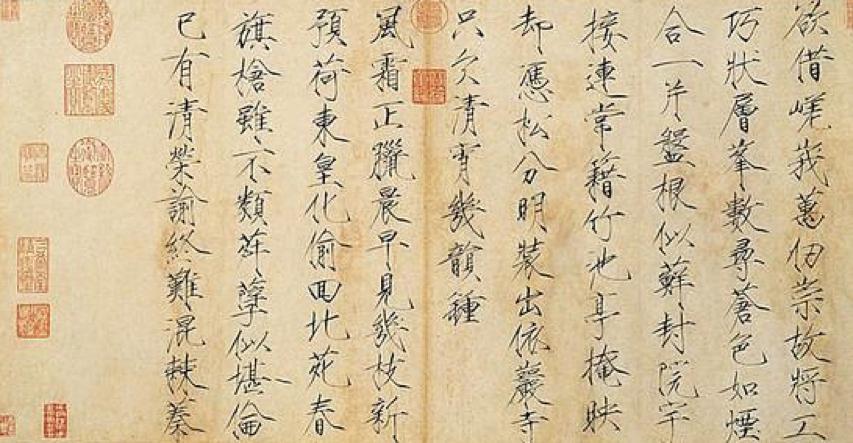 欲借嶢峩萬仞崇故將工
巧狀層峯數尋蒼色如煙
合一片盤根似蘚封院宇
接連常籍竹池亭掩映
却憑松分明裝出依巖寺
只欠清宵幾韻種
風霜正臘晨早見幾枝新
預荷東皇化偷回北苑春
旗槍雖不類荈孽似堪倫
已有清榮諭終難混棘蓁